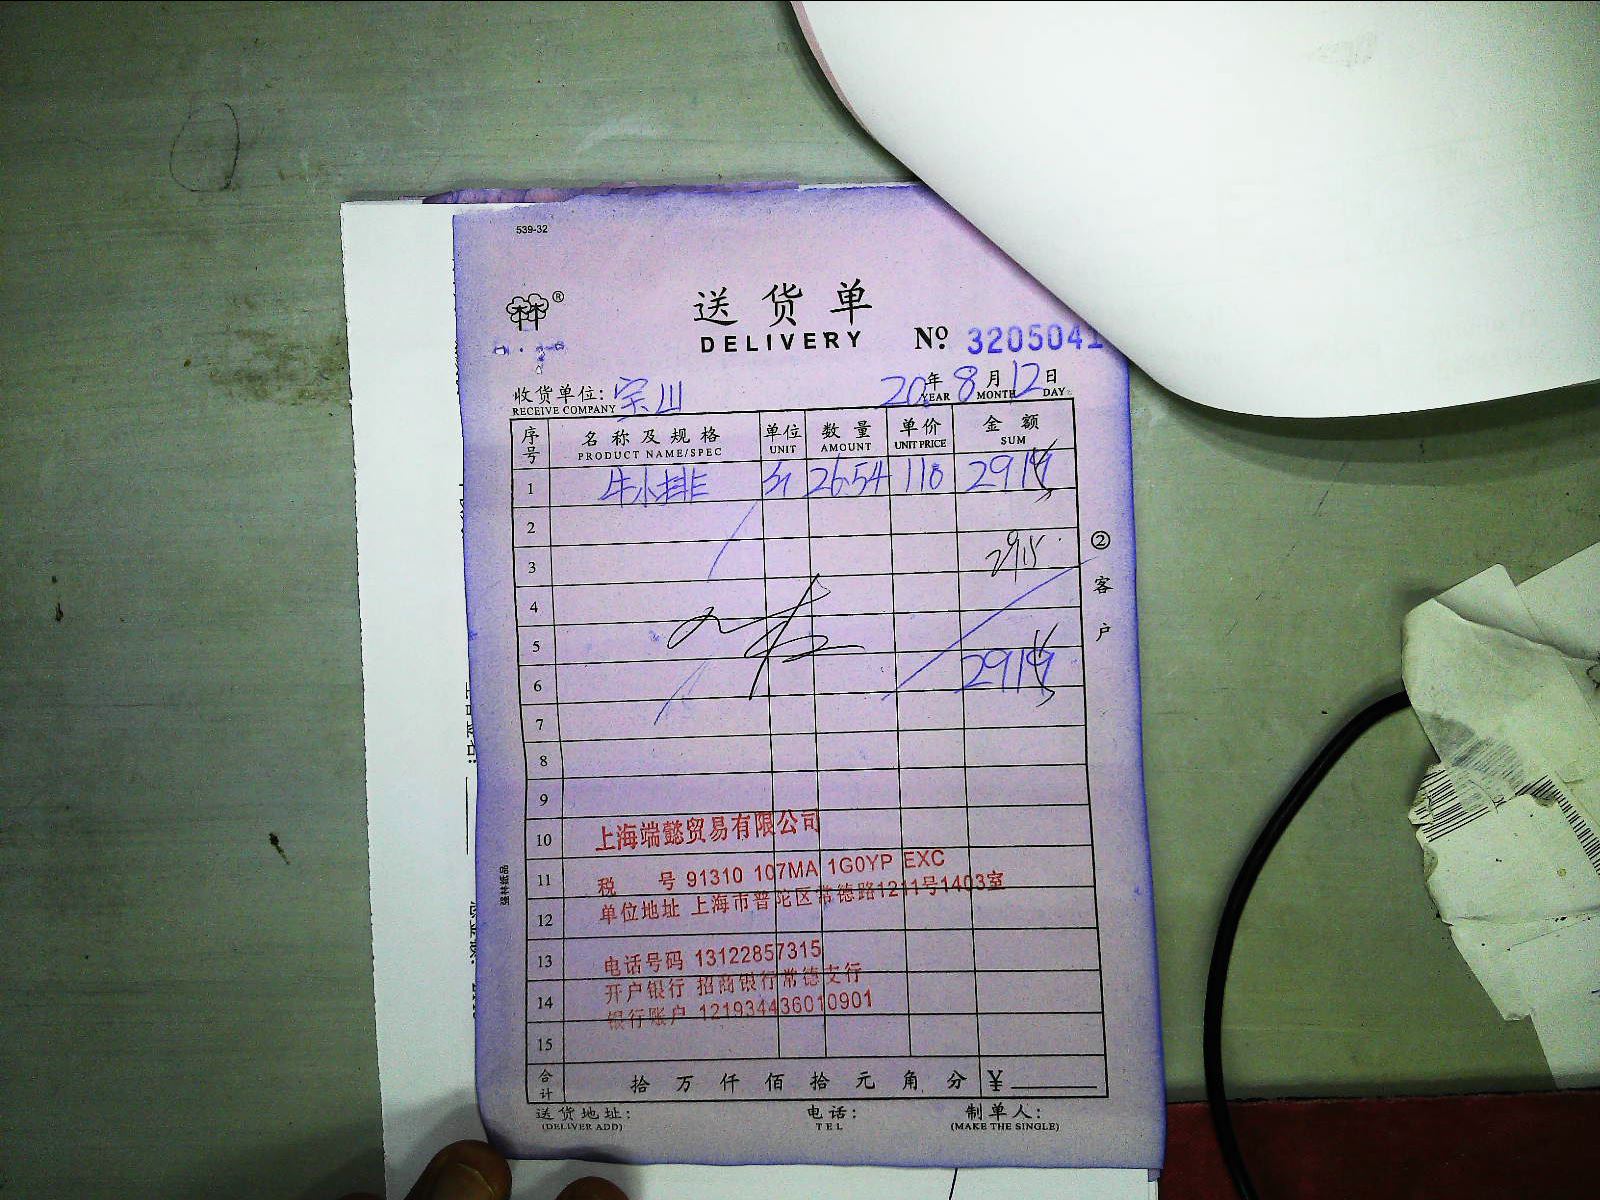 539-32
®
送货单
DELIVERY № 3205041
收货单位: 宗川 20年 8月 12日
RECEIVE COMPANY YEAR MONTH DAY
序号 名称及规格 单位 数量 单价 金额
PRODUCT NAME/SPEC UNIT AMOUNT UNIT PRICE SUM
1 牛小排 斤 26.54 110
2
3 2915
4
5
6
7
8
9
10 上海端懿贸易有限公司
11 税 号 91310 107MA 1G0YP EXC
12 单位地址 上海市普陀区常德路1211号1403室
13 电话号码 13122857315
开户银行 招商银行常德支行
14 银行账户 121934436010901
15
合计 拾 万 仟 佰 拾 元 角 分 ¥
送货地址: 电话: 制单人:
(DELIVER ADD) TEL (MAKE THE SINGLE)
②客户